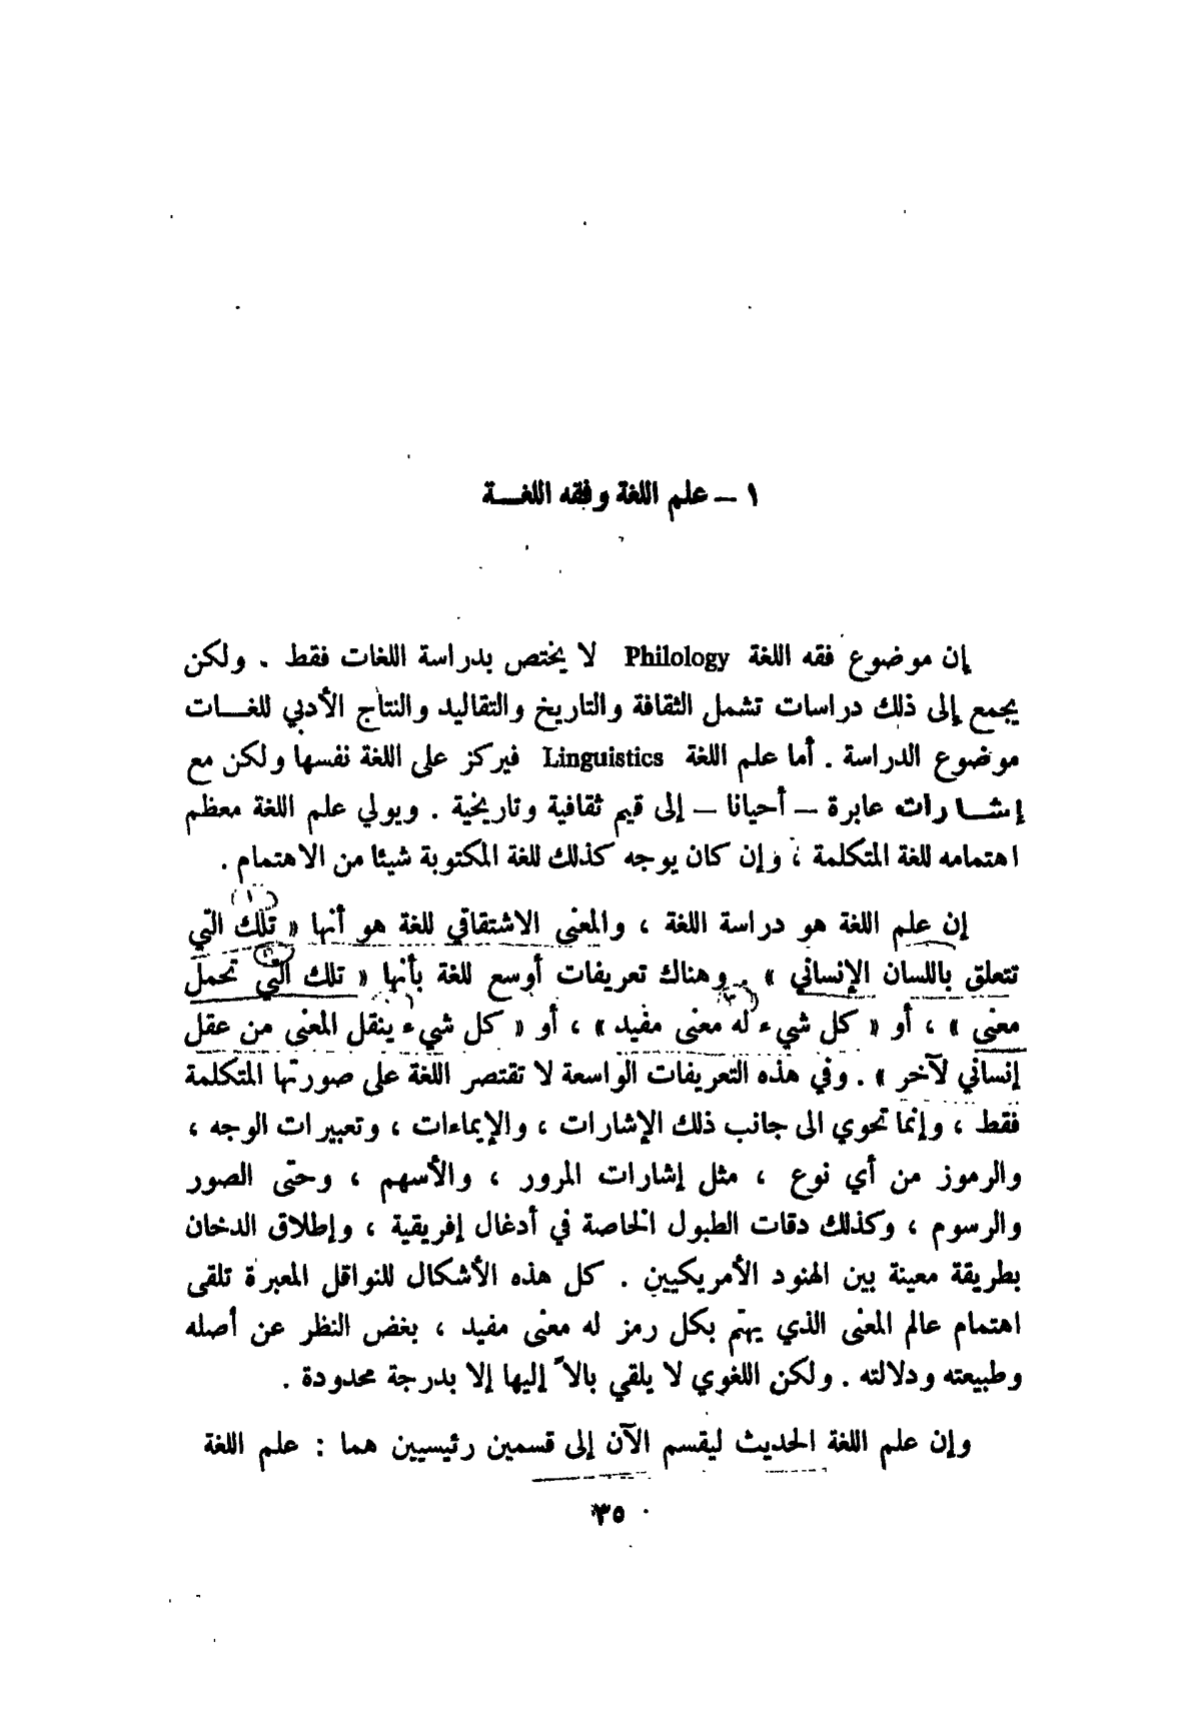 ١ – علم اللغة وفقه اللغـــة
إن موضوع فقه اللغة Philology لا يختص بدراسة اللغات فقط . ولكن
يجمع إلى ذلك دراسات تشمل الثقافة والتاريخ والتقاليد والنتاج الأدبي للغـــات
موضوع الدراسة . أما علم اللغة Linguistics فيركز على اللغة نفسها ولكن مع
إشـــارات عابرة – أحيانا – إلى قيم ثقافية وتاريخية . ويولي علم اللغة معظم
اهتمامه للغة المتكلمة ، وإن كان يوجه كذلك للغة المكتوبة شيئا من الاهتمام .
إن علم اللغة هو دراسة اللغة ، والمعنى الاشتقاقي للغة هو أنها « تلك التي
تتعلق باللسان الإنساني » . وهناك تعريفات أوسع للغة بأنها « تلك التي تحمل
معنى » ، أو « كل شيء له معنى مفيد » ، أو « كل شيء ينقل المعنى من عقل
إنساني لآخر » . وفي هذه التعريفات الواسعة لا تقتصر اللغة على صورتها المتكلمة
فقط ، وإنما تحوي الى جانب ذلك الإشارات ، والإيماءات ، وتعبيرات الوجه ،
والرموز من أي نوع ، مثل إشارات المرور ، والأسهم ، وحتى الصور
والرسوم ، وكذلك دقات الطبول الخاصة في أدغال إفريقية ، وإطلاق الدخان
بطريقة معينة بين الهنود الأمريكيين . كل هذه الأشكال للنواقل المعبرة تلقى
اهتمام عالم المعنى الذي يهتم بكل رمز له معنى مفيد ، بغض النظر عن أصله
وطبيعته ودلالته . ولكن اللغوي لا يلقي بالاً إليها إلا بدرجة محدودة .
وإن علم اللغة الحديث ليقسم الآن إلى قسمين رئيسيين هما : علم اللغة
٣٥